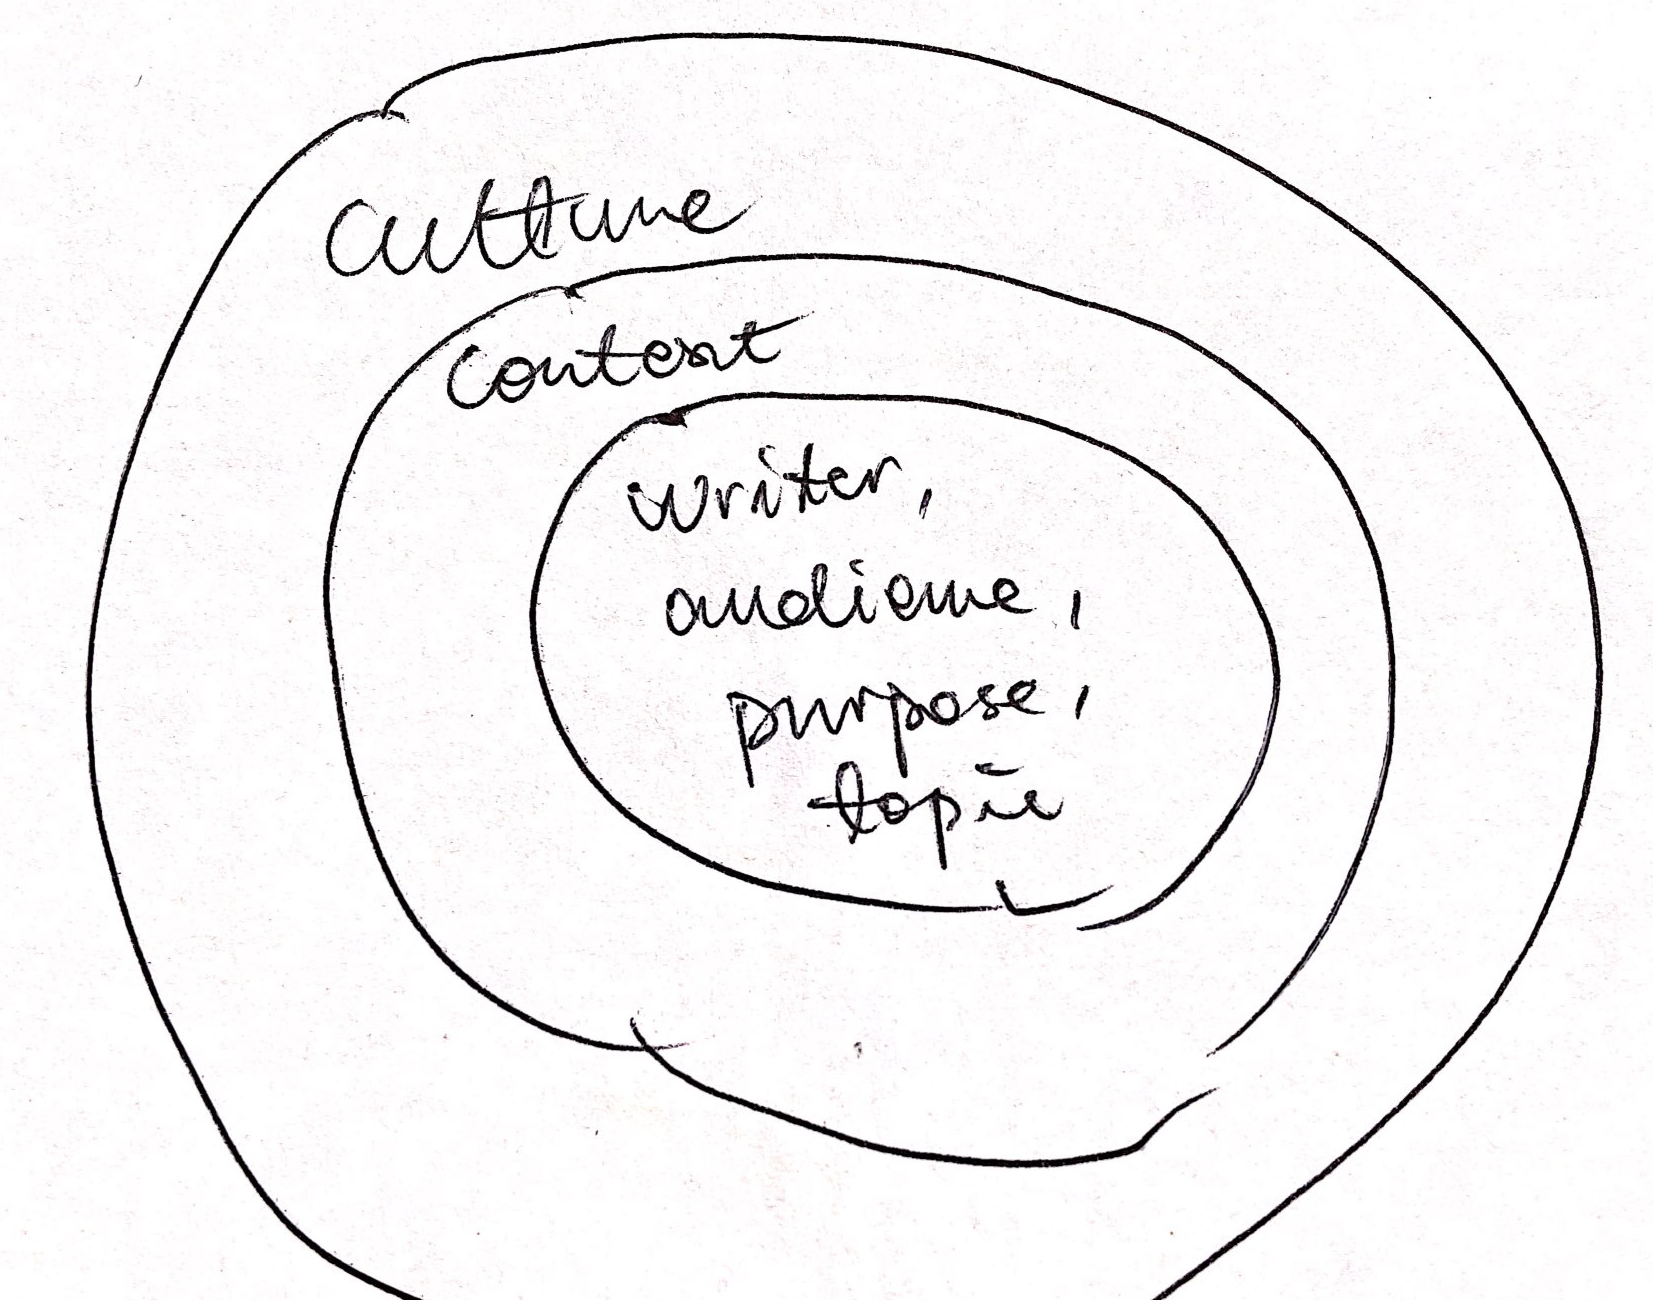 Culture
Context
writer,
audience,
purpose,
topic